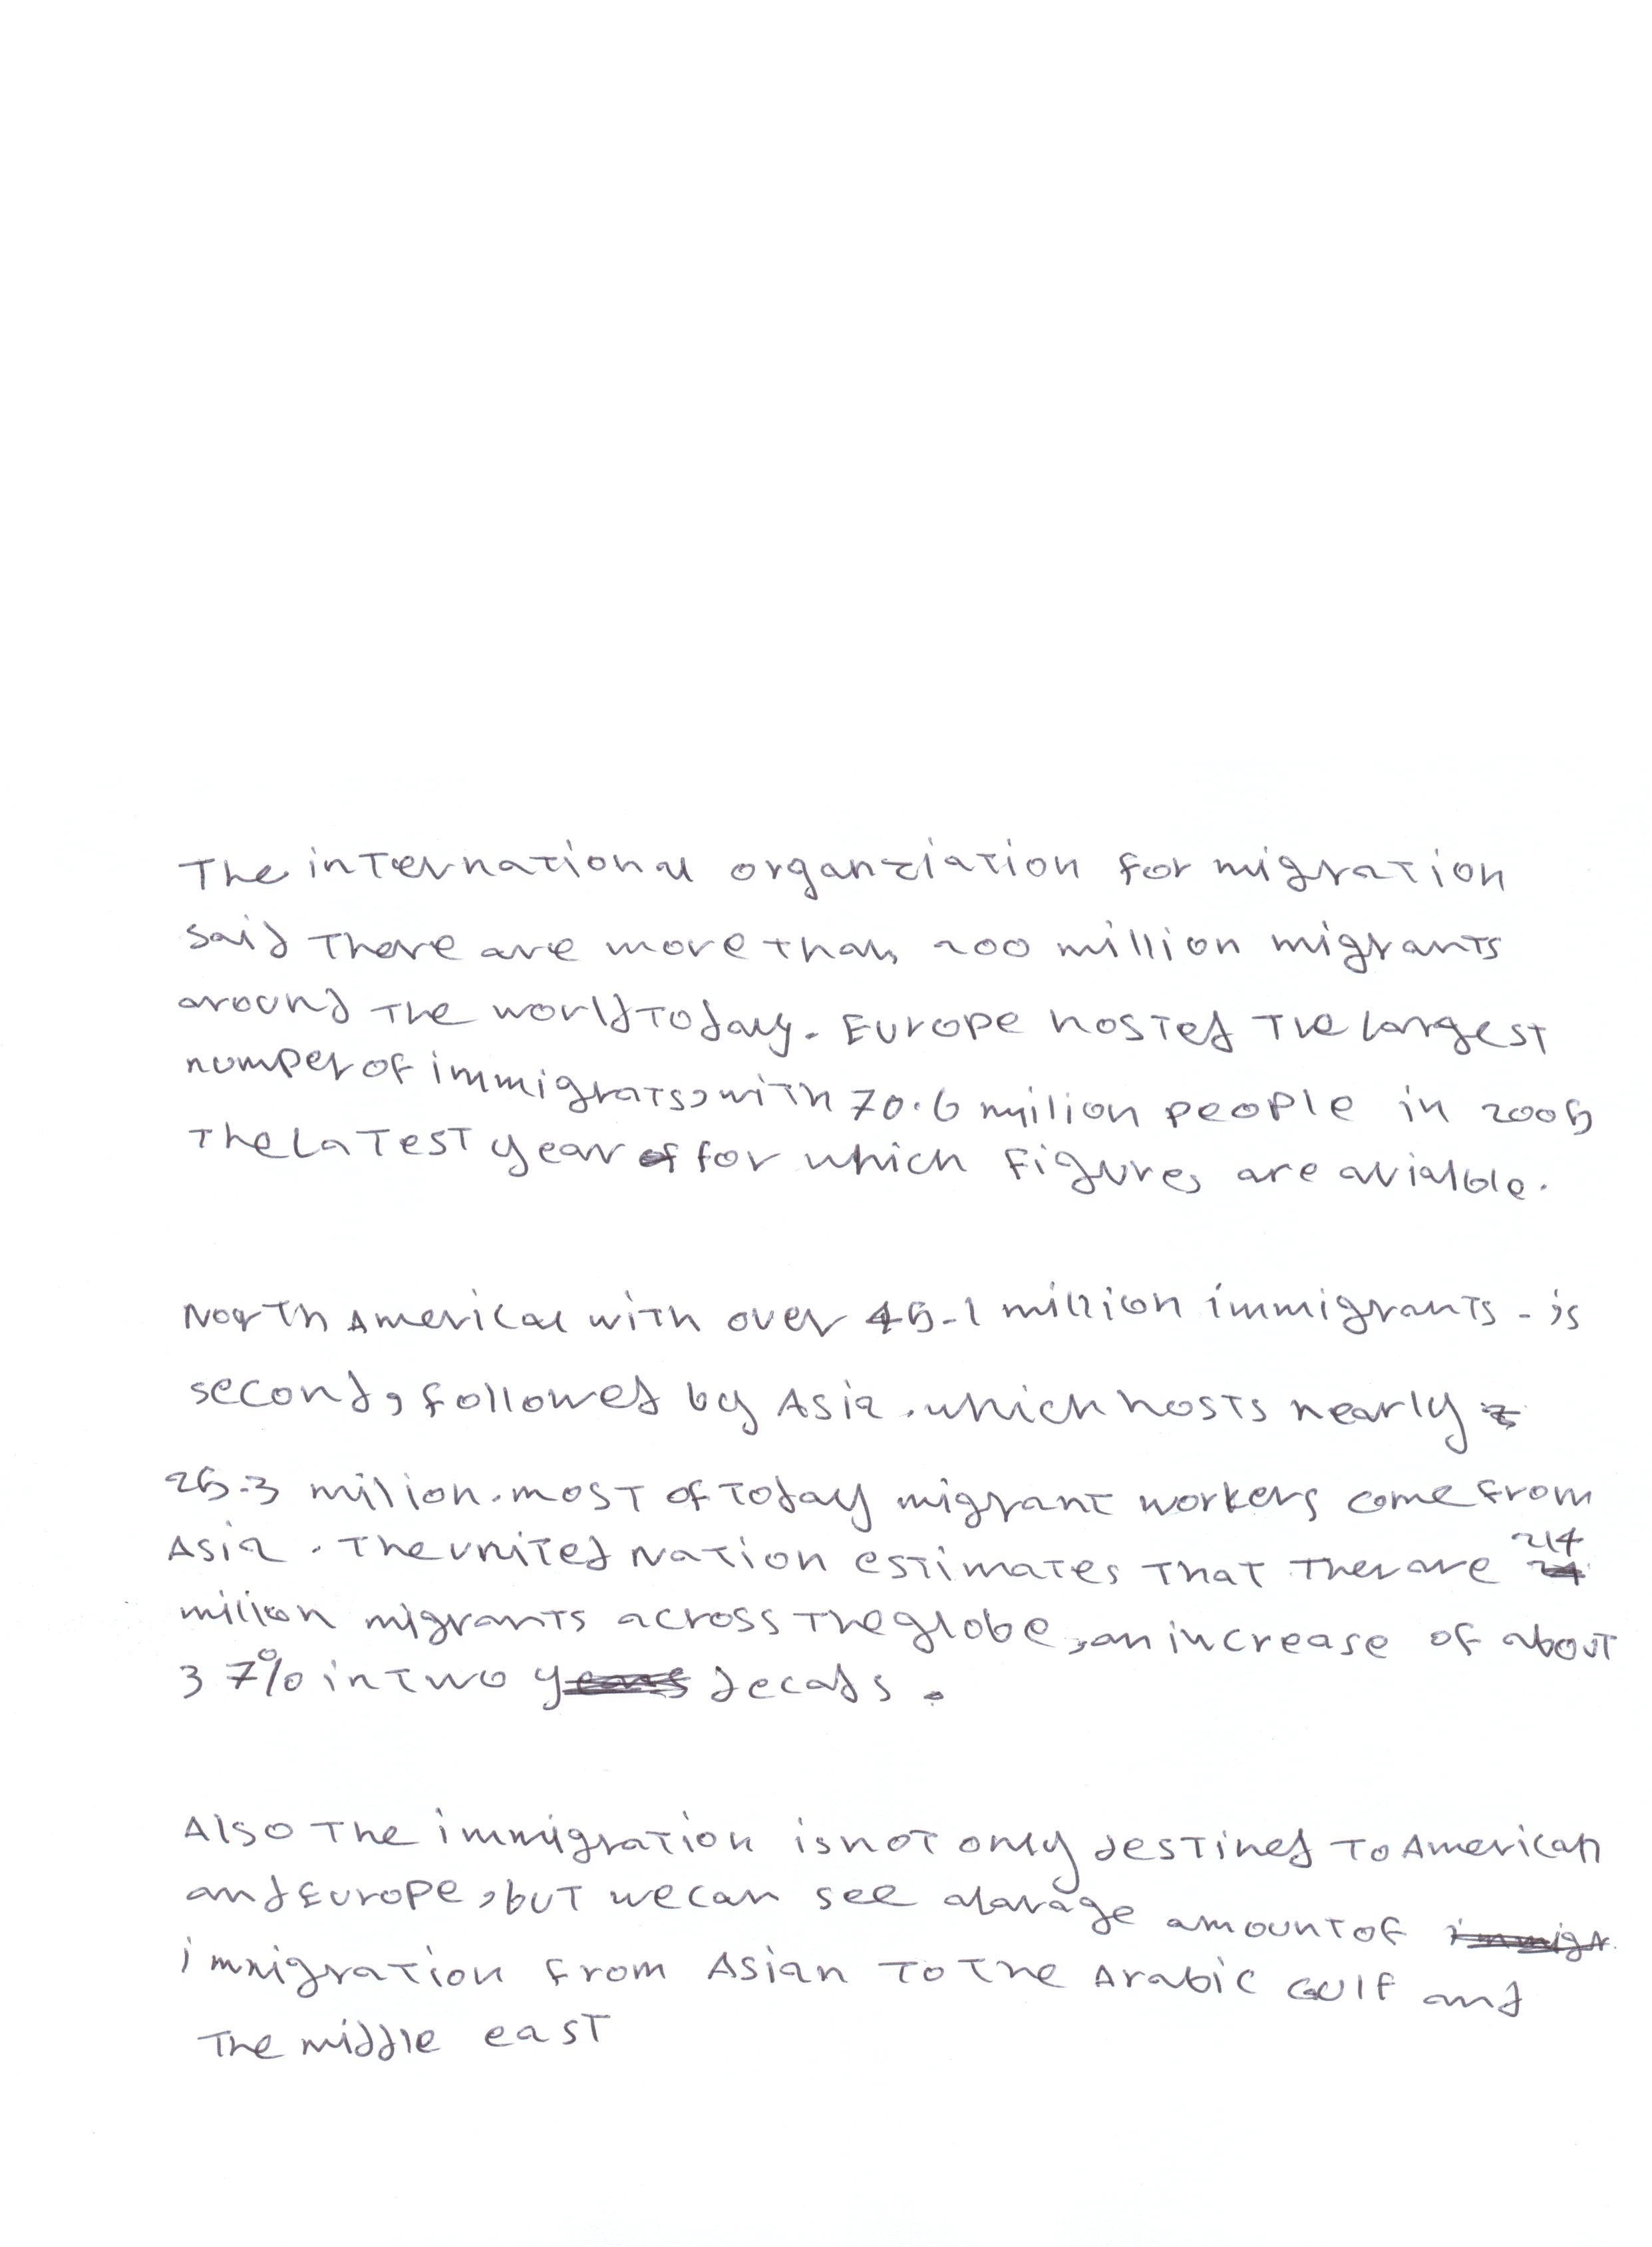 The international organziation for migration
said there are more than 200 million migrants
around the world today. Europe hosted the largest
numper of immigrats, with 70.6 milion people in 2005
the Latest year for which Figures are avialble.
North American with over 45.1 million immigrants - is
second, followed by Asia. which hosts nearly
25.3 milion. most of today migrant workers come from
Asia. The united Nation estimates that ther are 214
million migrants across the globe, an increase of about
37% in two decads.
Also The immigration is not only destined to American
and Europe, but we can see alarage amount of
immigration from Asian to the Arabic Gulf and
The middle east